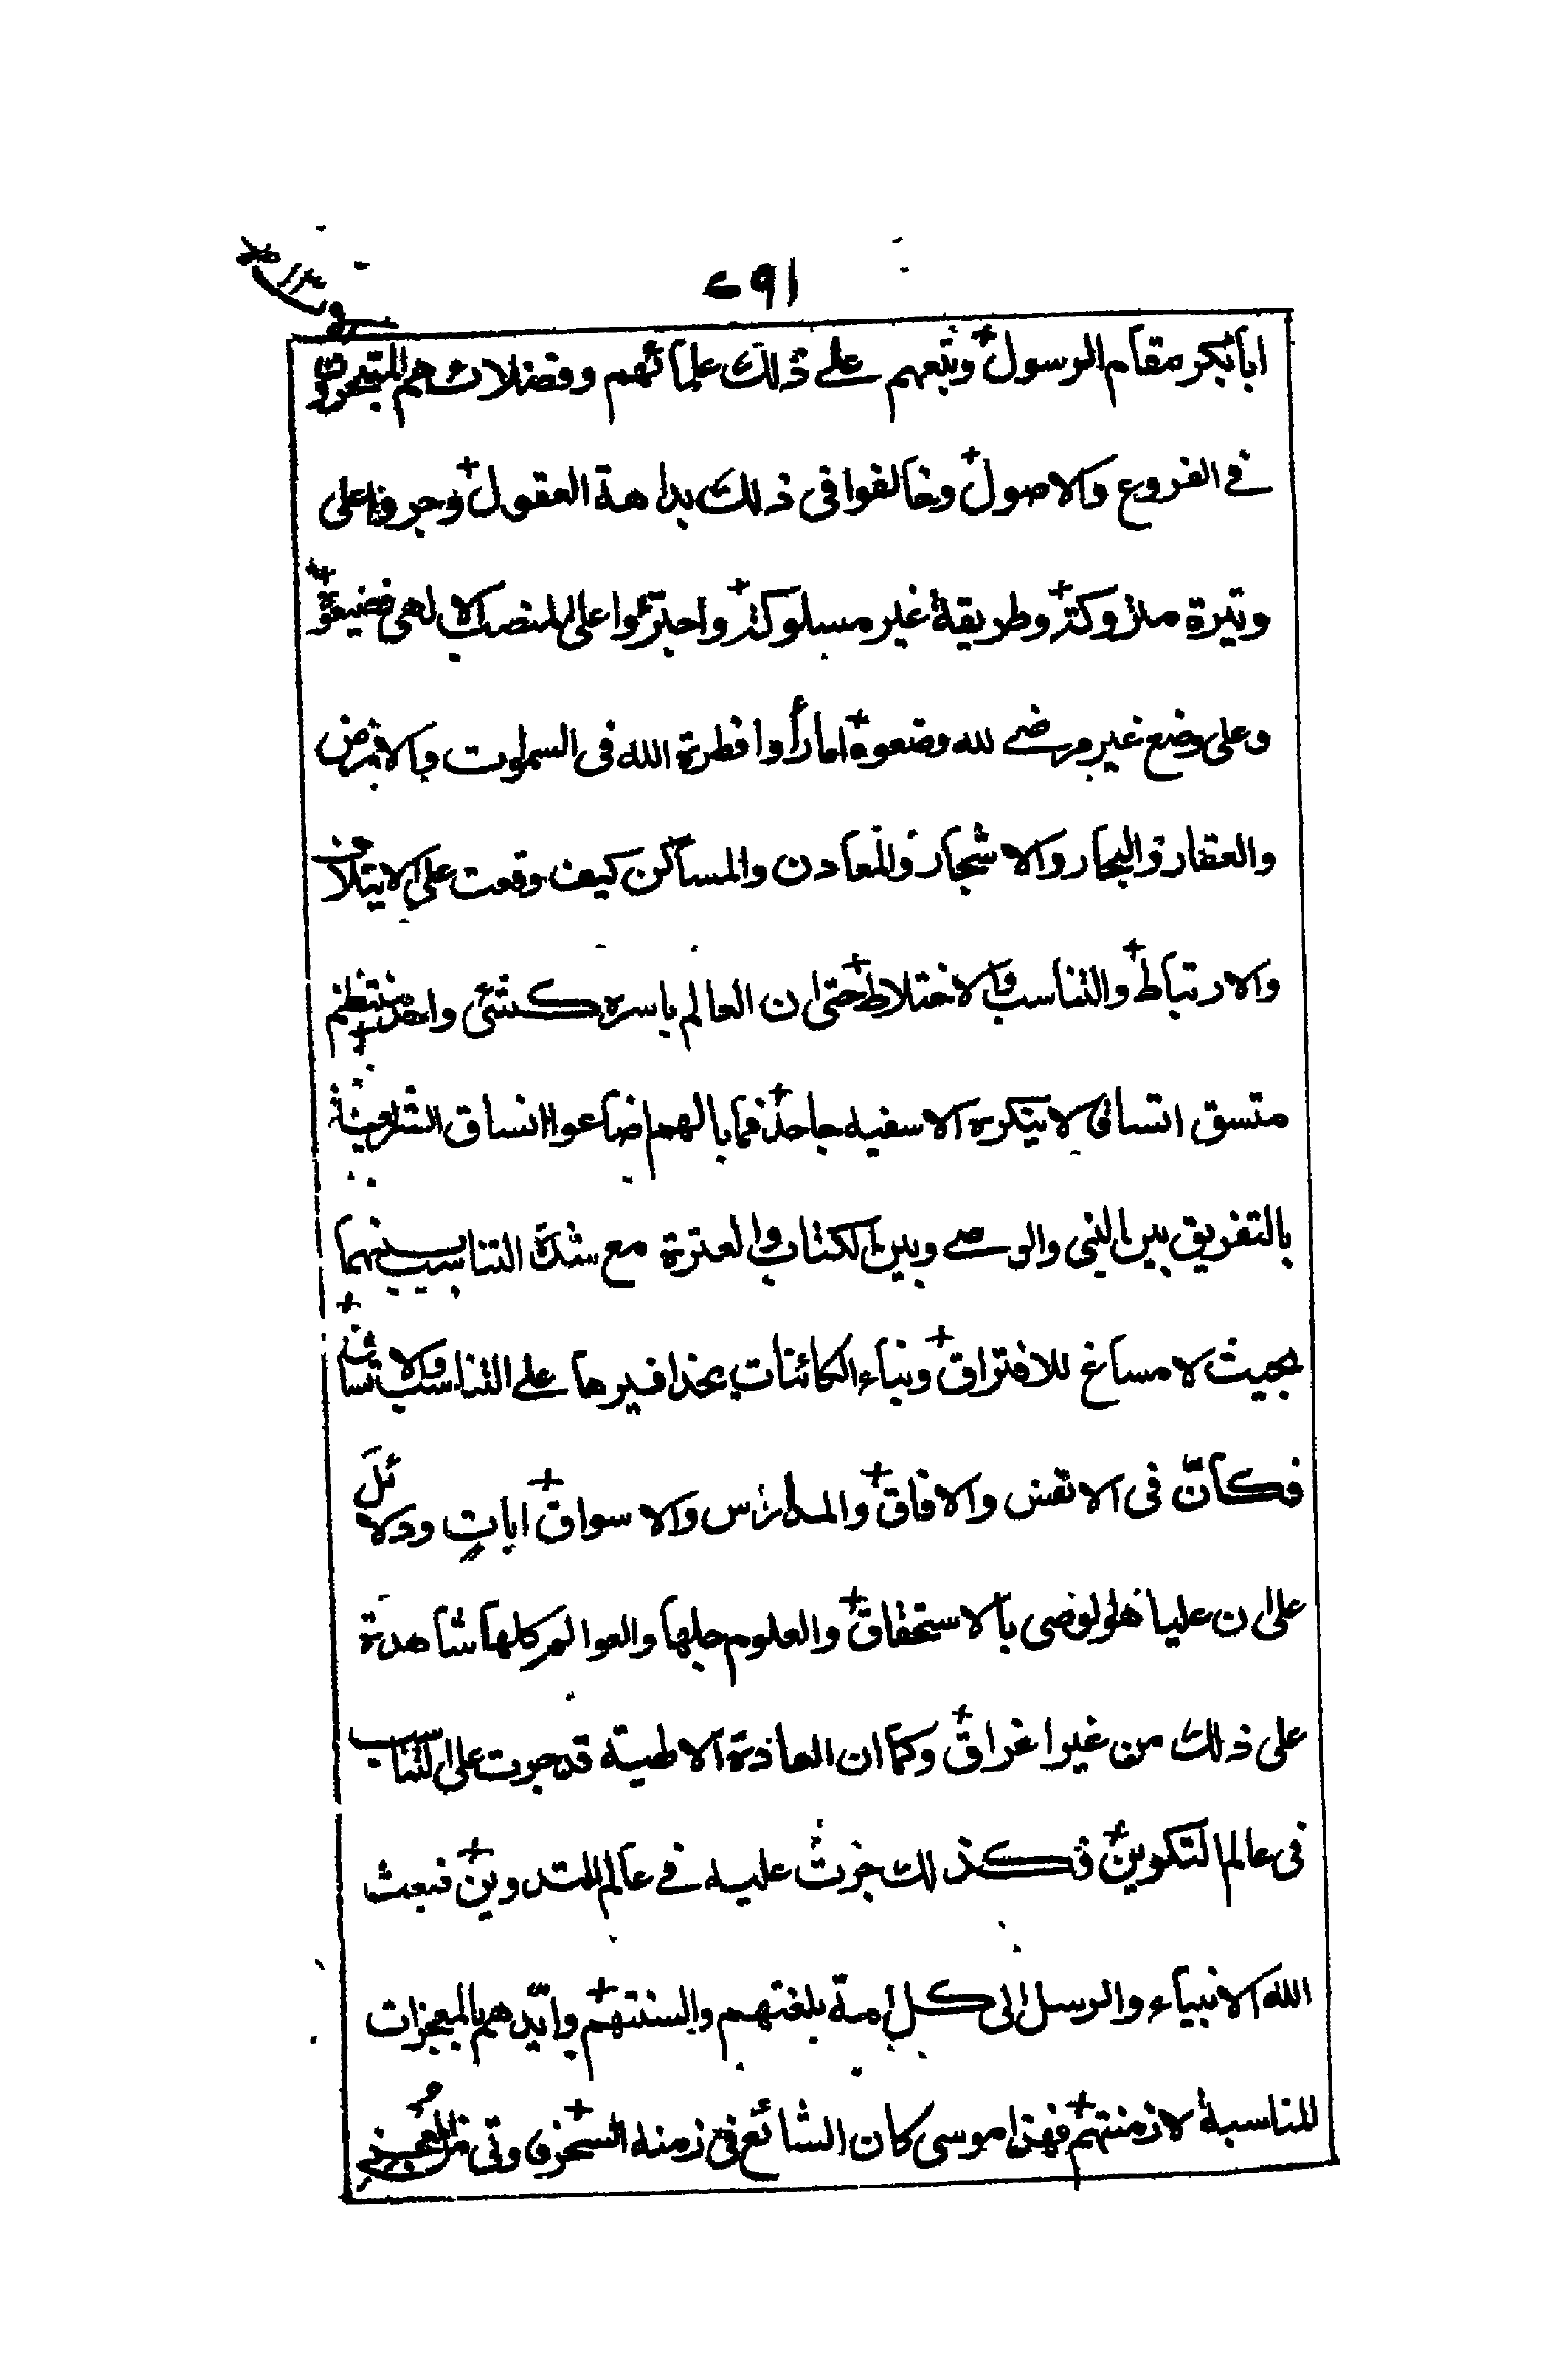 ۲۹۱
ابا بكر مقام الرسول وتبعهم على ذلك علمائهم وفضلائهم المتبحرون
في الفروع والاصول وخالفوا في ذلك بداهة العقول وجروا على
وتيرة متروكة وطريقة غير مسلوكة واجترئوا على المنصب الالهي فضيعوه
وعلى وضع غير مرضي لله وضعوه اما رأوا فطرة الله في السموات والارض
والعقار والبحار والاشجار والمعادن والمساكن كيف وقعت على الايتلاف
والارتباط والتناسب والاختلاط حتى ان العالم باسره كشئ واحد منتظم
متسق اتساقا لا ينكره الا سفيه جاحد فما بالهم اضاعوا اتساق الشريعة
بالتفريق بين النبي والوصي وبين الكتاب والعترة مع شدة التناسب بينهما
بحيث لا مساغ للافتراق وبناء الكائنات بحذافيرها على التناسب والاتساق
فكأنّ في الانفس والافاق والمدارس والاسواق ايات ودلائل
على ان عليا هو الوصي بالاستحقاق والعلوم جلها والعوالم كلها شاهدة
على ذلك من غير اغراق وكما ان العادة الالهية قد جرت على التناسب
في عالم التكوين فكذلك جرت عليه في عالم التدوين فبعث
الله الانبياء والرسل الى كل امة بلغتهم والسنتهم وايّدهم بالمعجزات
المناسبة لازمنتهم فهذا موسى كان الشائع في زمنه السحر فاوتي من المعجز